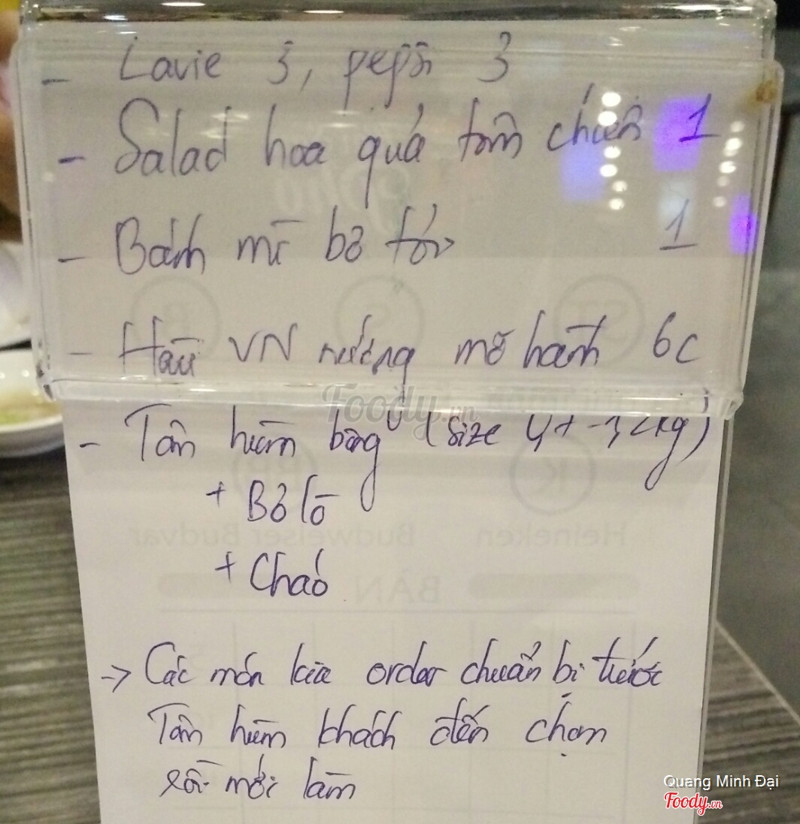 - Lavie 3, pepsi 3
- Salad hoa quả tôm chiên 1
- Bánh mì bò tỏi 1
- Hàu VN nướng mỡ hành 6c
- Tôm hùm bông (size
+ Bỏ lò
+ Cháo
Foody.vn
Heineken Budweiser Budvar
BÀN
→ Các món kia order chuẩn bị trước
Tôm hùm khách đến chọn
rồi mới làm
Quang Minh Đại
Foody.vn